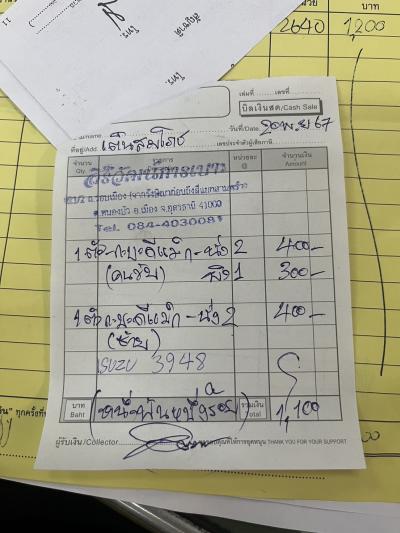 บาท
2640 1,200
โทร.
โทร.
เล่มที่ เลขที่
บิลเงินสด/Cash Sale
วันที่/Date 20 พ.ย 67
ที่อยู่/Add.
เลขประจำตัวผู้เสียภาษี
จำนวน รายการ หน่วยละ จำนวนเงิน
Qty. @ Amount
ถ.รอบเมือง
ต.หนองบัว อ.เมือง จ.อุดรธานี 41000
Tel. 084-4030081
1 ตัว - กะบะดีแม็ก - นั่ง 2 400-
(คนขับ) พิง 1 300-
1 ตัว กะบะดีแม็ก - นั่ง 2 400-
(ซ้าย)
ISUZU 3948
บาท (หนึ่งพันหนึ่งร้อย) รวมเงิน 1,100
Baht Total
ผู้รับเงิน/Collector ขอบคุณที่ให้การอุดหนุน THANK YOU FOR YOUR SUPPORT